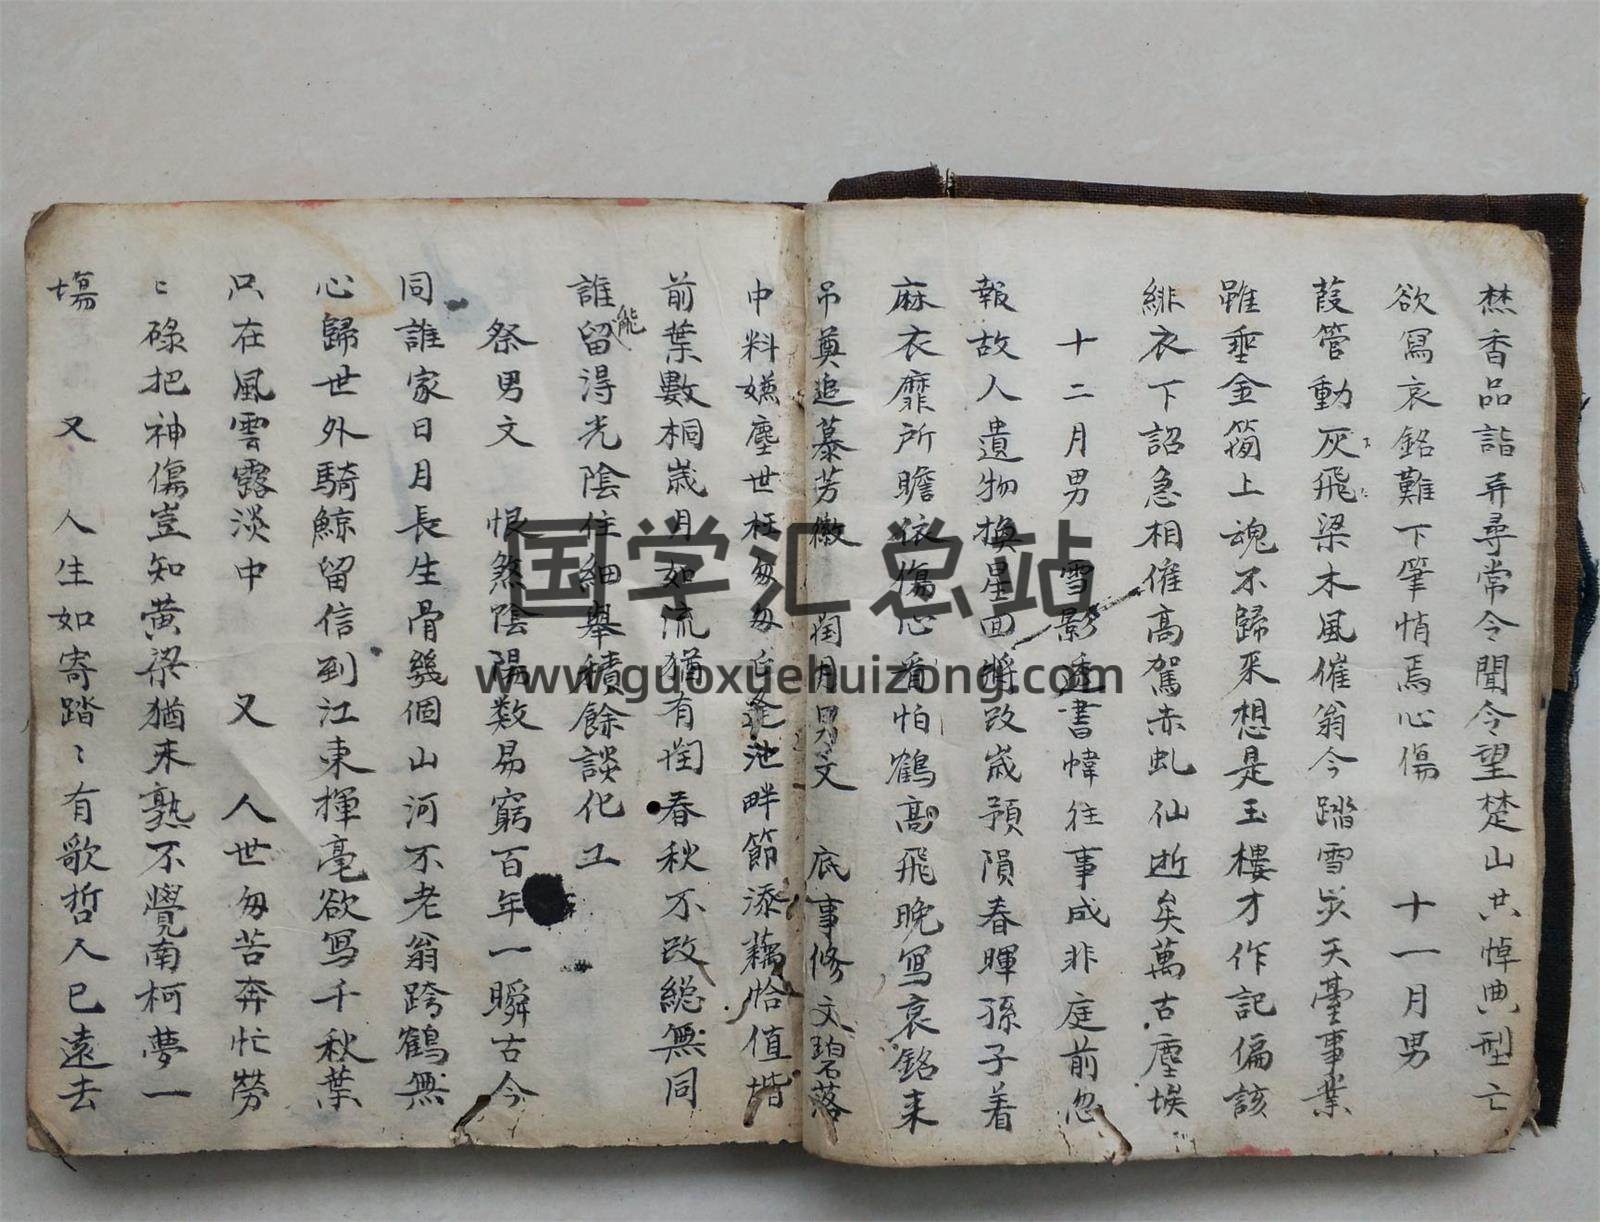 焚香品詣弄尋常令聞令望楚山共悼典型亡
欲寫哀銘難下筆悄焉心傷 十一月男
葭管動灰飛梁木風催翁今踏雪 天臺事業
雖垂金簡上魂不歸来想是玉樓才作記偏該
緋衣下詔急相催高駕赤虬仙逝矣萬古塵埃
十二月男 雪影透書幃往事成非庭前忽
報故人遺物換星回將改歳預隕春暉孫子着
麻衣靡所瞻依傷心看怕鶴高飛晚寫哀銘来
吊奠追慕芳徽 閏月男文 底事修文碧落
中料嫌塵世枉匆匆 逢池畔節添藕恰值堦
前葉數桐歳月如流猶有閏春秋不改総無同
誰能留得光陰住細舉積餘談化工
祭男文 恨煞陰陽数易窮百年一瞬古今
同誰家日月長生骨幾個山河不老翁跨鶴無
心歸世外騎鯨留信到江東揮毫欲写千秋葉
只在風雲露淡中 又 人世匆苦奔忙勞
〻碌把神傷豈知黄粱猶来熟不覺南柯夢一
塲 又 人生如寄踏〻有歌哲人已遠去
国学汇总站
www.guoxuehuizong.com